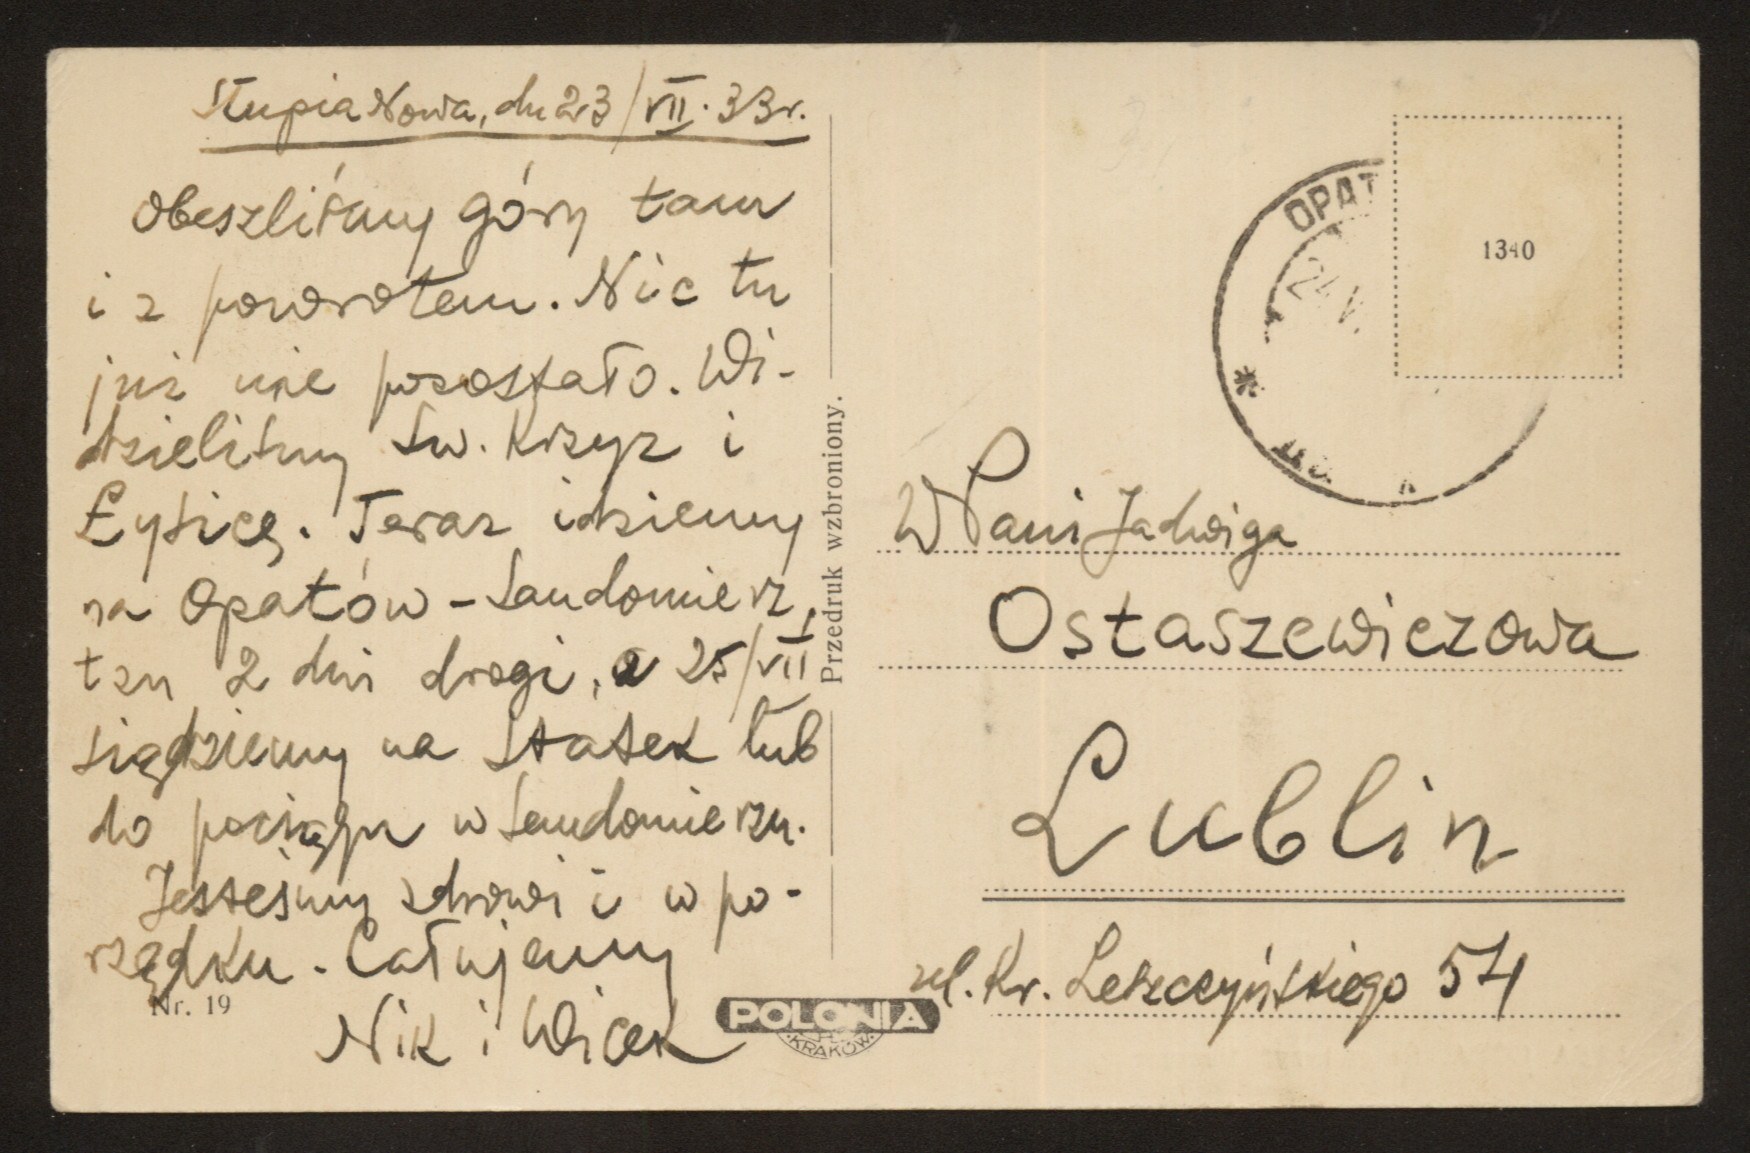 Słupia Nowa, dn 23/VII. 33r.
Obeszliśmy góry tam
i z powrotem. Nic tu
już nie pozostało. Wi-
dzieliśmy Św. Krzyż i
Łysicę. Teraz idziemy
na Opatów - Sandomierz,
tzn 2 dni drogi, a 25/VII
siądziemy na statek lub
do pociągu w Sandomierzu.
Jesteśmy zdrowi i w po-
rządku. Całujemy
Nik i Wicek
Nr. 19
Przedruk wzbroniony.
POLONIA
KRAKÓW
OPAT
24 V
1340
WPani Jadwiga
Ostaszewiczowa
Lublin
ul. Kr. Leszczyńskiego 54